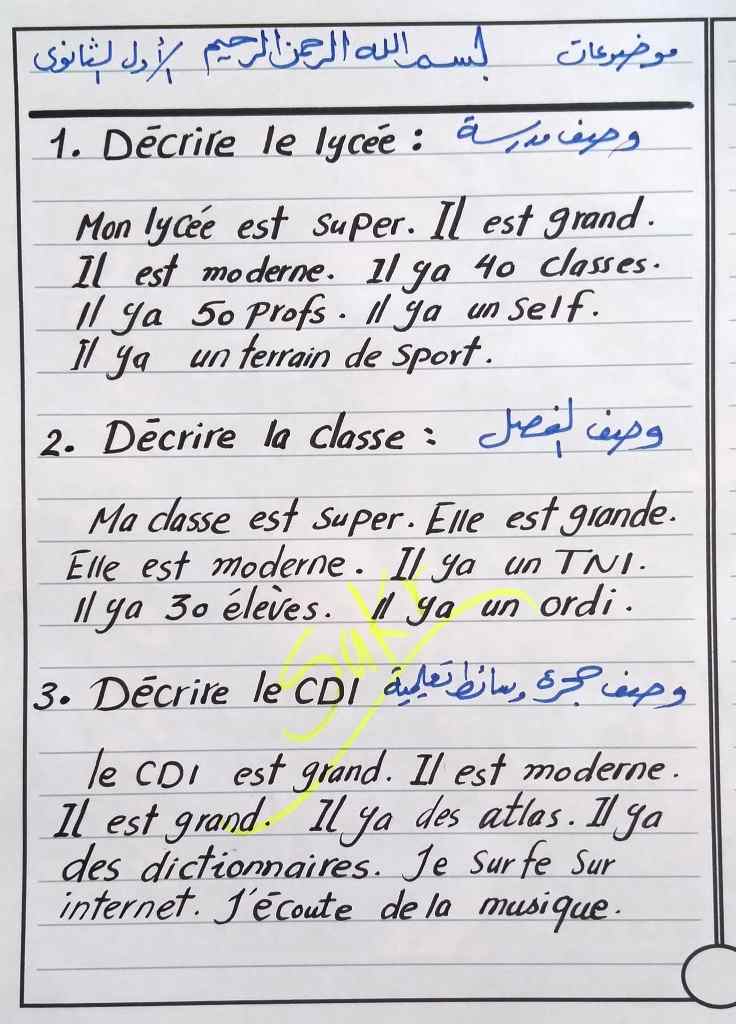 موضوعات بسم الله الرحمن الرحيم الأول الثانوى
1. Décrire le lycée : وصف مدرسة
Mon lycée est super. Il est grand.
Il est moderne. Il ya 40 classes.
Il ya 50 Profs. Il ya un self.
Il ya un terrain de sport.
2. Décrire la classe : وصف الفصل
Ma classe est super. Elle est grande.
Elle est moderne. Il ya un TNI.
Il ya 30 élèves. Il ya un ordi.
3. Décrire le CDI وصف حجرة وسائط تعليمية
le CDI est grand. Il est moderne.
Il est grand. Il ya des atlas. Il ya
des dictionnaires. Je surfe sur
internet. J'écoute de la musique.